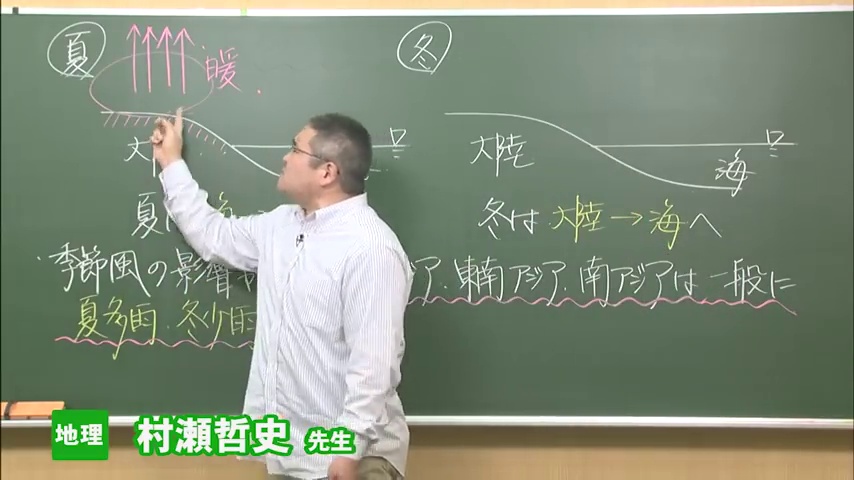 夏
冬
暖
大
大陸
海
夏は
冬は 大陸→海へ
季節風の影響 ア、東南アジア、南アジアは一般に
夏多雨、冬少雨
地理 村瀬哲史 先生